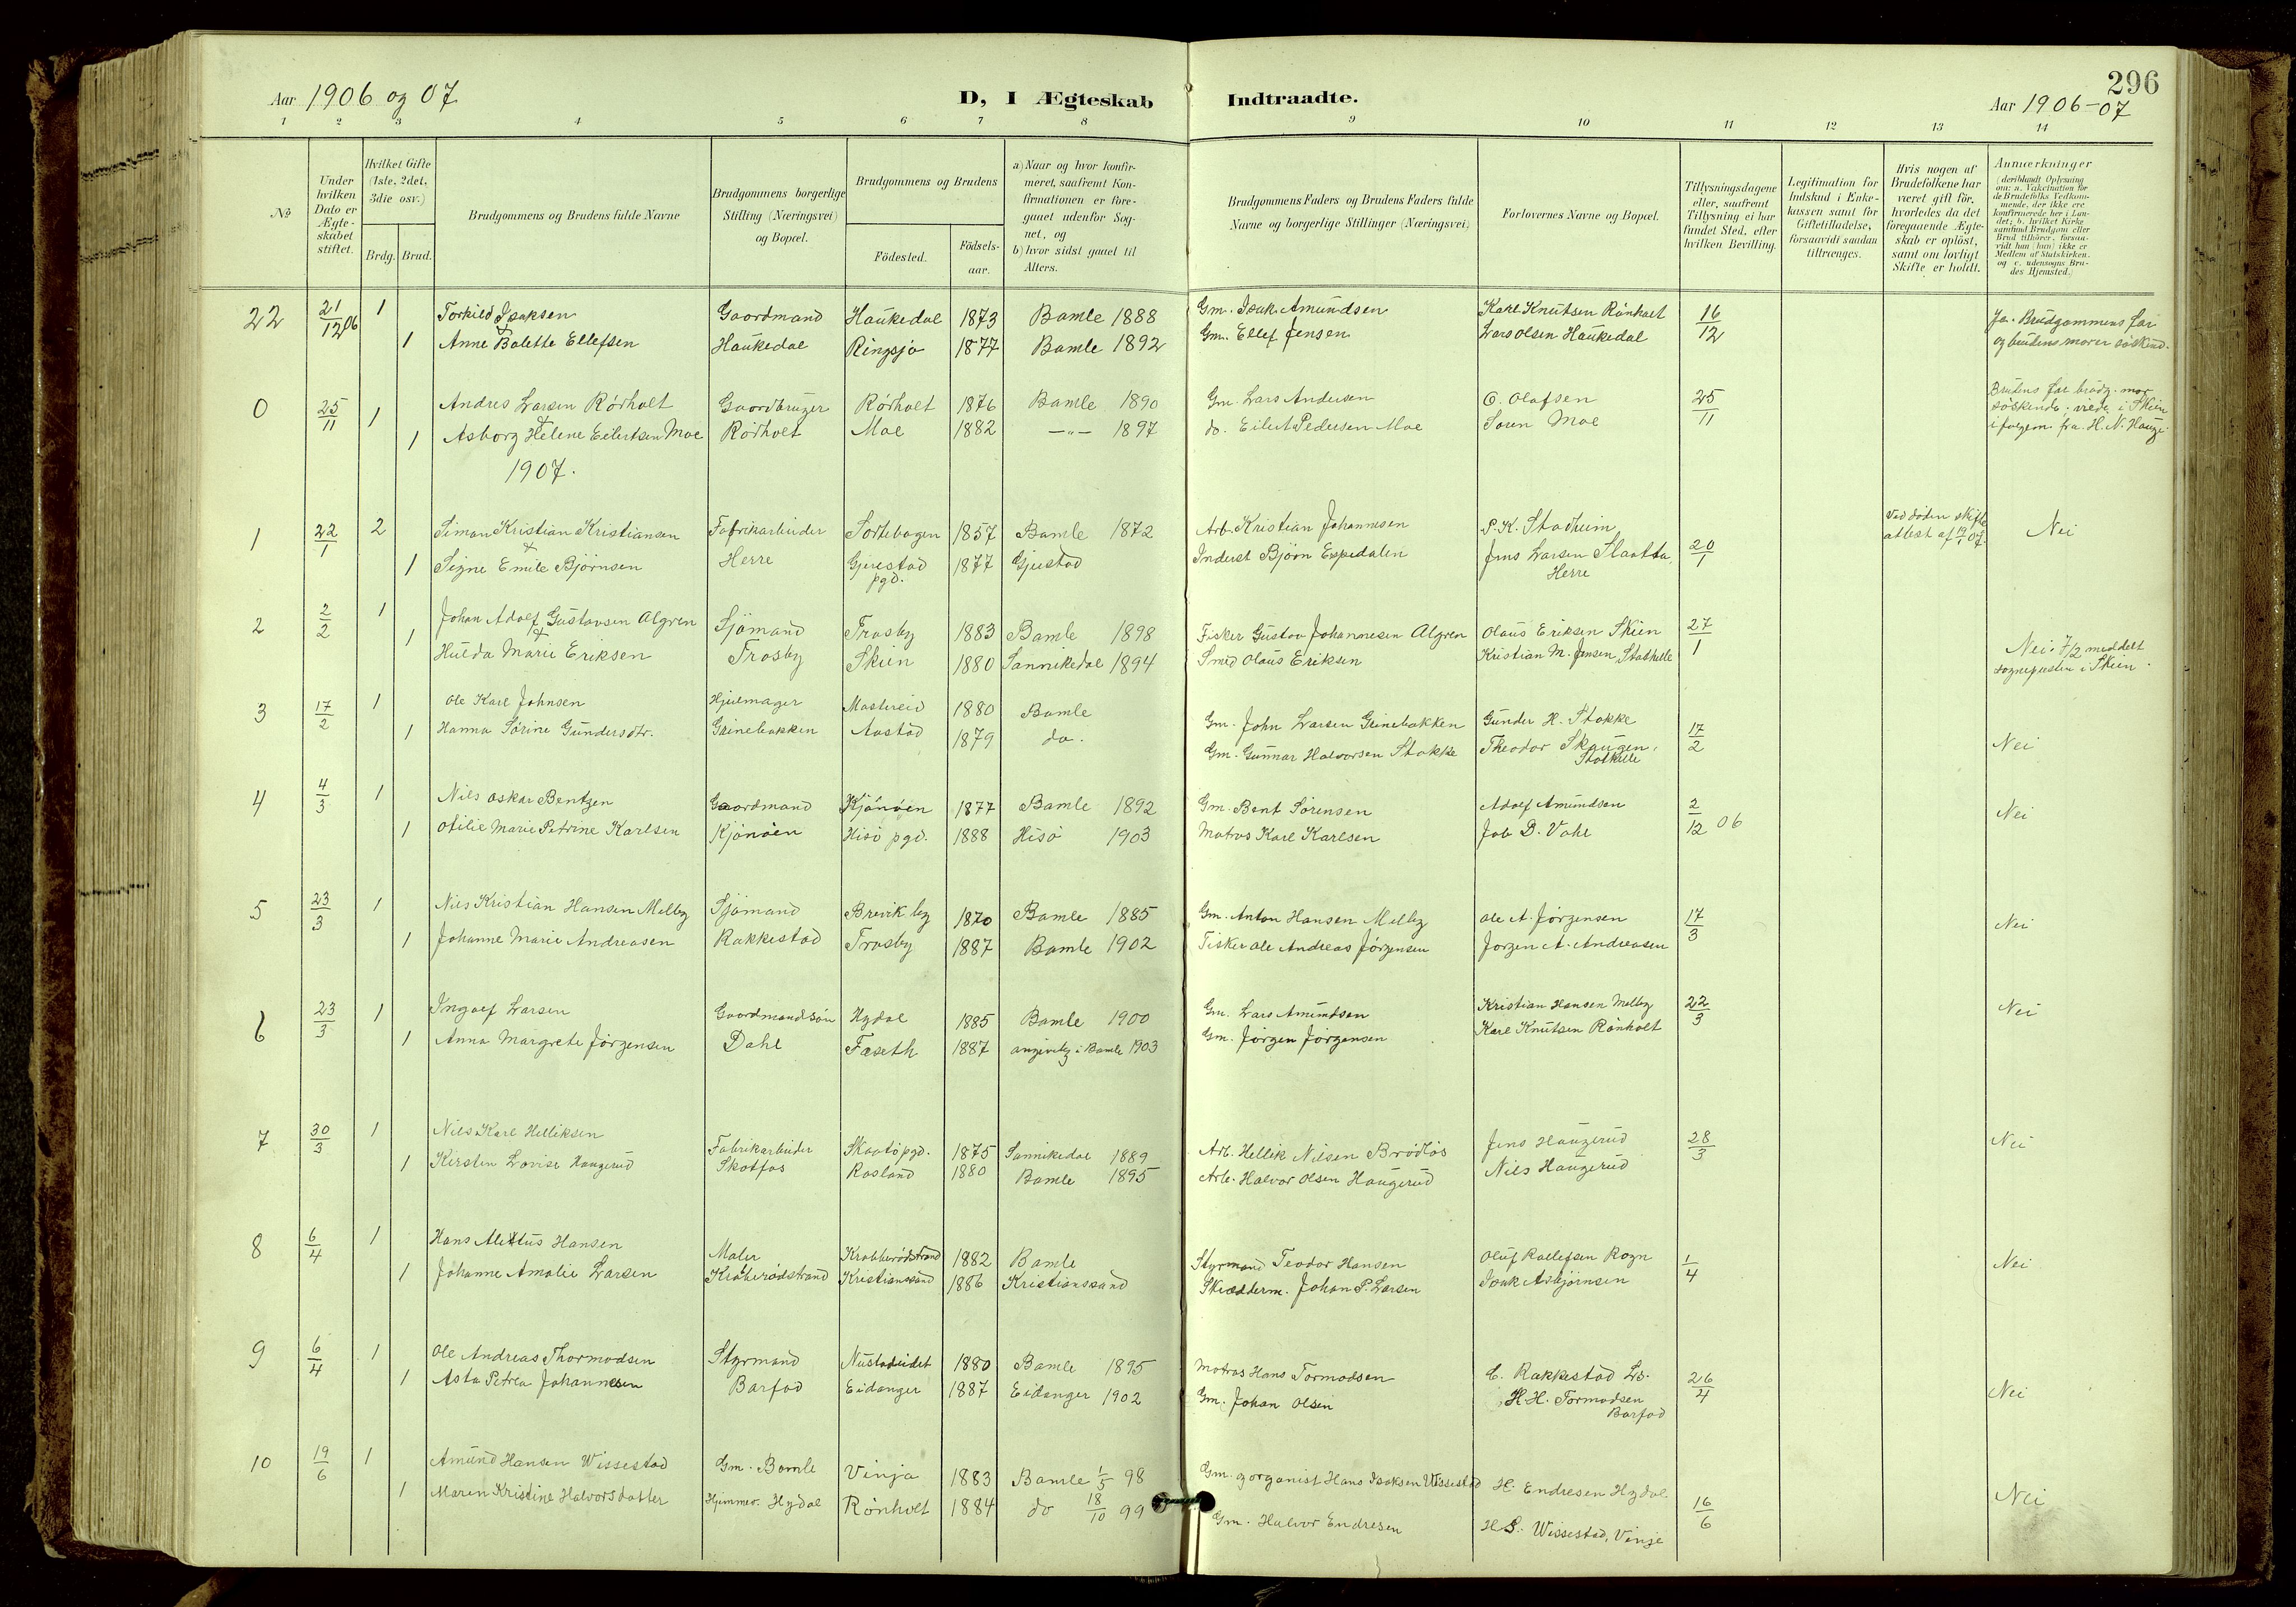 296
Aar 1906 og 07
D, I Ægteskab Indtraadte.
Aar 1906-07
1 2 3 4 5 6 7 8 9 10 11 12 13 14
No
Under hvilken Dato er Ægteskabet stiftet.
Hvilket Gifte (1ste, 2det, 3die osv.)
Brdg. Brud.
Brudgommens og Brudens fulde Navne
Brudgommens borgerlige Stilling (Næringsvei) og Bopæl.
Brudgommens og Brudens
Födested.
Födselsaar.
a) Naar og hvor konfirmeret, saafremt Konfirmationen er foregaaet udenfor Sognet, og
b) hvor sidst gaaet til Alters.
Brudgommens Faders og Brudens Faders fulde Navne og borgerlige Stillinger (Næringsvei)
Forlovernes Navne og Bopæl.
Tillysningsdagene eller, saafremt Tillysning ei har fundet Sted, efter hvilken Bevilling.
Legitimation for Indskud i Enkekassen samt for Giftetilladelse, forsaavidt saadan tiltrænges.
Hvis nogen af Brudefolkene har været gift før, hvorledes da det foregaaende Ægteskab er oplöst, samt om lovligt Skifte er holdt.
Anmærkninger (deriblandt Oplysning om: a. Vakcination for de Brudefolks Vedkommende, der ikke ere konfirmerede her i Landet; b. hvilket Kirkesamfund Brudgom eller Brud tilhörer, forsaavidt han (hun) ikke er Medlem af Statskirken, og c. udensogns Brudes Hjemsted.)
22 21/12 06 1 Torkild Isaksen Gaardmand Haukedal 1873 Bamle 1888 Gm. Isak Amundsen Karl Knutsen Rönholt 16/12 Ja. Brudgommens far
1 Anne Bolette Ellefsen Haukedal Ringsjø 1877 Bamle 1892 Gm. Ellef Jensen Lars Olsen Haukedal og brudens morer söskend.
0 25/11 1 Andres Larsen Rörholt Gaardbruger Rörholt 1876 Bamle 1890 Gm. Lars Andersen O. Olafsen 25/11 Brudens far brudg. mor
1 Asborg Helene Eilertsen Moe Rörholt Moe 1882 —"— 1897 do. Eilert Pedersen Moe Soren Moe söskende; viede i Skien
i folgem. fra. H. N. Hauge.
1907.
1 22/1 2 Simon Kristian Kristiansen Fabrikarbeider Sortebogen 1857 Bamle 1872 Arb. Kristian Johannesen P. K. Stadheim 20/1 Ved döden skifte attest af 19/1 07. Nei
1 Signe Emilie Björnsen Herre Gjerestad pgd. 1877 Gjerstad Inderst Björn Espedalen Jens Larsen Slaatta, Herre
2 2/2 1 Johan Adolf Gustavsen Algren Sjömand Trosby 1883 Bamle 1898 Fisker Gustav Johannesen Algren Olaus Eriksen Skien 27/1 Nei. 7/2 meddelt
1 Hulda Marie Eriksen Trosby Skien 1880 Sannikedal 1894 Smed Olaus Eriksen Kristian M. Jensen, Stathelle sognepresten i Skien.
3 17/2 1 Ole Karl Johnsen Hjulmager Mastereid 1880 Bamle Gm. John Larsen Grinebakken Gunder H. Stokke 17/2 Nei
1 Hanna Sörine Gundersdtr. Grinebakken Aastad 1879 do. Gm. Gunnar Halvorsen Stokke Theodor Skaugen, Stathelle
4 4/3 1 Nils Oskar Bentzen Gaardmand Kjönöen 1877 Bamle 1892 Gm. Bent Sörensen Adolf Amundsen 2/12 06 Nei
1 Otilie Marie Petrine Karlsen Kjönöen Hisö pgd. 1888 Hisö 1903 Matros Karl Karlsen Job D. Vahl
5 23/3 1 Nils Kristian Hansen Melby Sjömand Brevik by 1870 Bamle 1885 Gm. Anton Hansen Melby Ole A. Jörgensen 17/3 Nei
1 Johanne Marie Andreasen Rakkestad Trosby 1887 Bamle 1902 Fisker Ole Andreas Jörgensen Jorgen A. Andreasen
6 23/3 1 Ingolf Larsen Gaardmandsön Hydal 1885 Bamle 1900 Gm. Lars Amundsen Kristian Hansen Melby 22/3 Nei
1 Anna Margrete Jörgensen Dahl Faseth 1887 angivelig i Bamle 1903 Gm. Jörgen Jörgensen Karl Knutsen Rönholt
7 30/3 1 Nils Karl Helliksen Fabrikarbeider Skaatö pgd. 1875 Sannikedal 1889 Arb. Hellik Nilsen Brödlös Jens Haugerud 28/3 Nei
1 Kirsten Lovise Haugerud Skotfos Rosland 1880 Bamle 1895 Arb. Halvor Olsen Haugerud Nils Haugerud
8 6/4 1 Hans Alektus Hansen Maler Krabberödstrand 1882 Bamle Styrmand Teodor Hansen Oluf Rollefsen Rogn 1/4 Nei
1 Johanne Amalie Larsen Krabberödstrand Kristianssand 1886 Kristianssand Skrædderm. Johan P. Larsen Isak Asbjörnsen
9 6/4 1 Ole Andreas Thormodsen Styrmand Nustadeidet 1880 Bamle 1895 Matros Hans Tormodsen C. Rakkestad Ls. 26/4 Nei
1 Asta Petrea Johannesen Barfod Eidanger 1887 Eidanger 1902 Gm. Johan Olsen H. H. Tormodsen Barfod
10 19/6 1 Amund Hansen Wissestad Gm. Bamle Vinja 1883 Bamle 1/5 98 Gm. og organist Hans Isaksen Wissestad H. Endresen Hydal 16/6 Nei
1 Maren Kristine Halvorsdatter Hjemmev. Hydal Rönholt 1884 do 18/10 99 Gm. Halvor Endresen H. S. Wissestad, Vinje